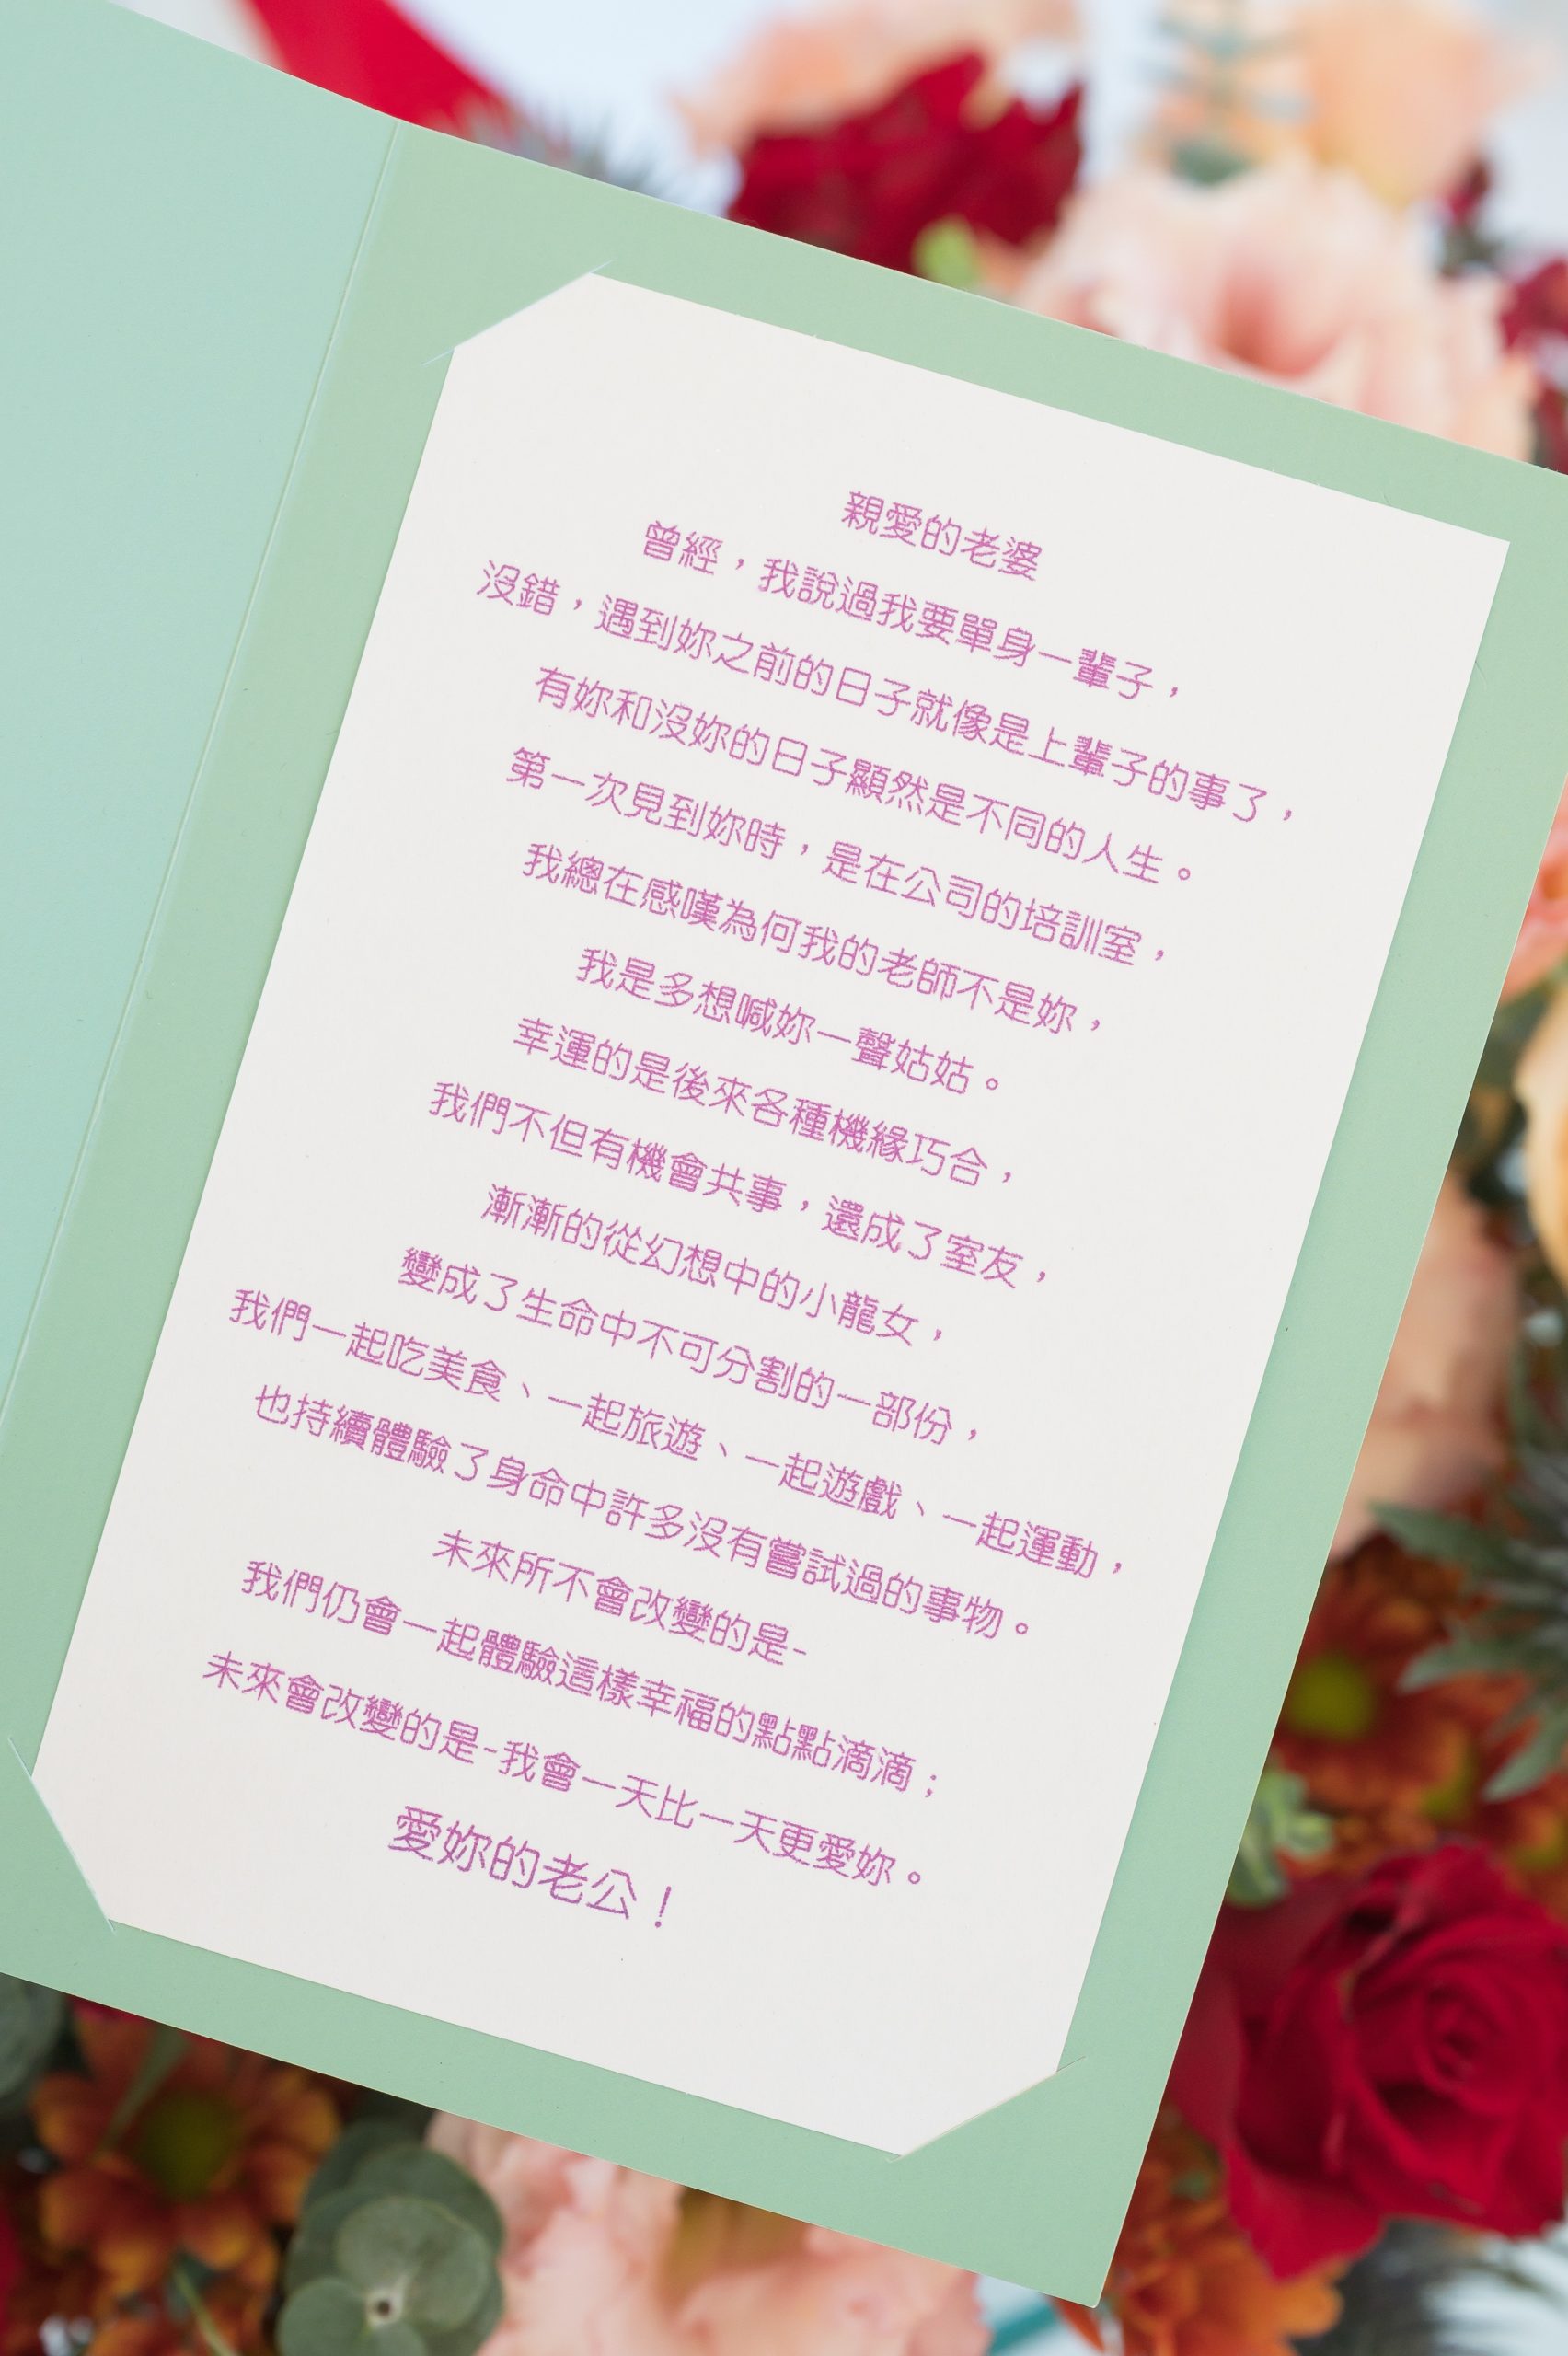 親愛的老婆
曾經，我說過我要單身一輩子，
沒錯，遇到妳之前的日子就像是上輩子的事了，
有妳和沒妳的日子顯然是不同的人生。
第一次見到妳時，是在公司的培訓室，
我總在感嘆為何我的老師不是妳，
我是多想喊妳一聲姑姑。
幸運的是後來各種機緣巧合，
我們不但有機會共事，還成了室友，
漸漸的從幻想中的小龍女，
變成了生命中不可分割的一部份，
我們一起吃美食、一起旅遊、一起遊戲、一起運動，
也持續體驗了身命中許多沒有嘗試過的事物。
未來所不會改變的是-
我們仍會一起體驗這樣幸福的點點滴滴；
未來會改變的是-我會一天比一天更愛妳。
愛妳的老公！